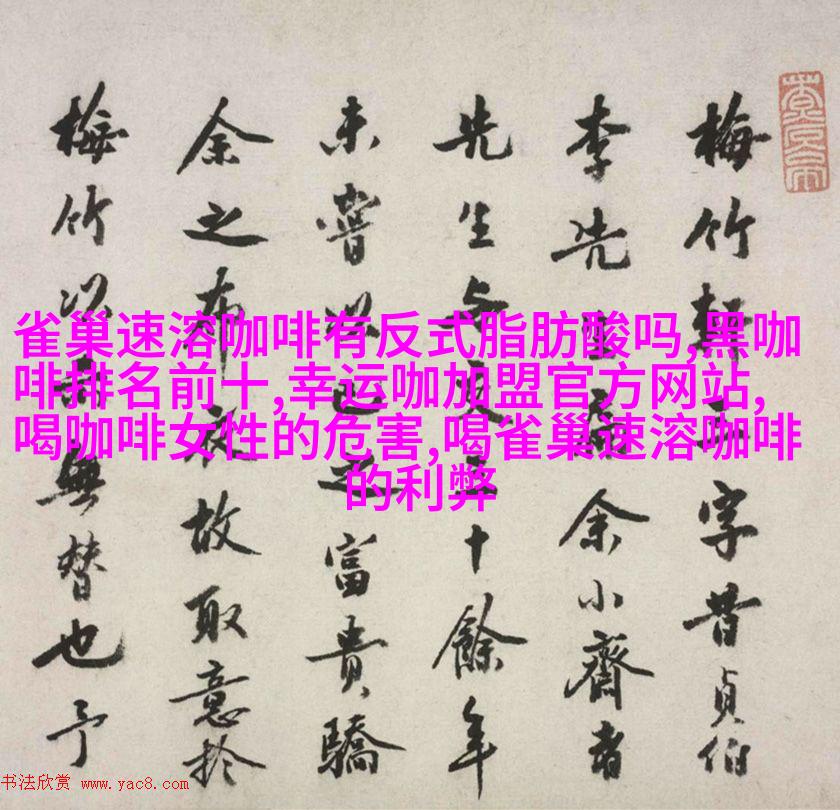 雀巢速溶咖啡有反式脂肪酸吗,黑咖
啡排名前十,幸运咖加盟官方网站,
喝咖啡女性的危害,喝雀巢速溶咖啡
的利弊
梅竹軒字昔貞伯
李先扁余小齋者
先生与更十餘年
未嘗以己之富貴驕
余之布衣故取意於
梅竹以無替也予
书法欣赏 www.yac8.com